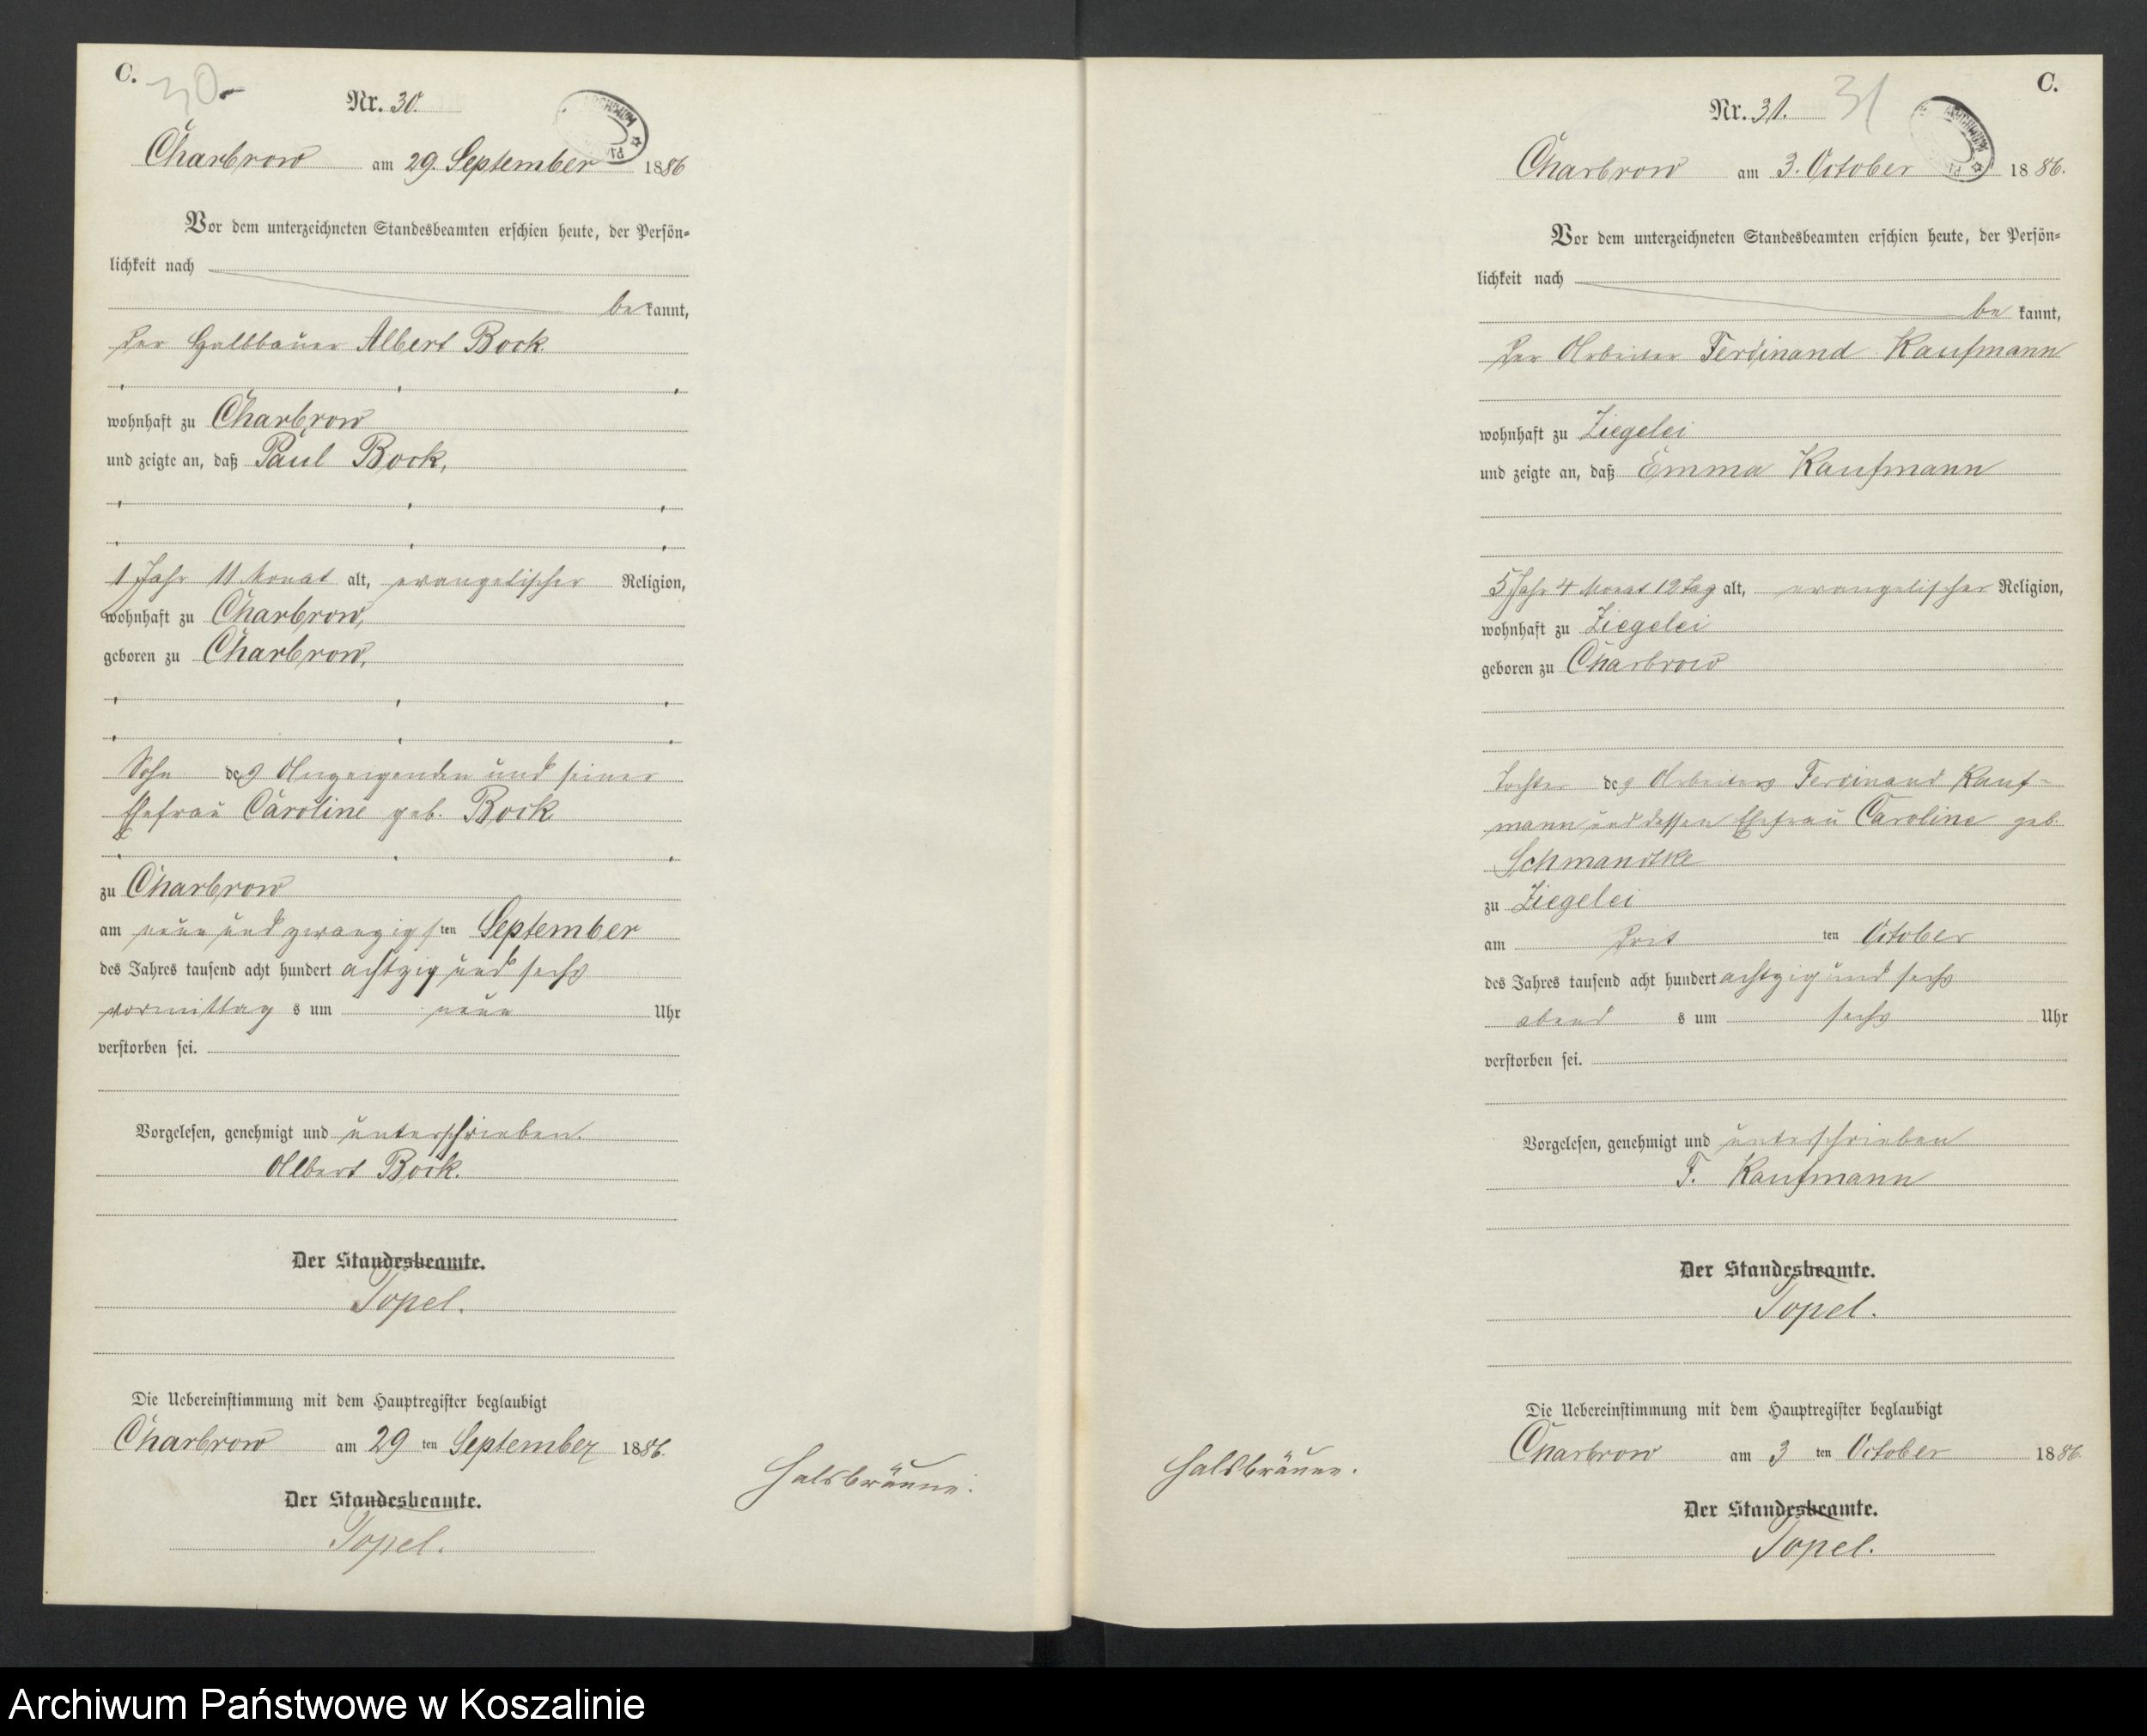 C.
30.
Nr. 30.
Charbrow am 29. September 1886
Vor dem unterzeichneten Standesbeamten erschien heute, der Persön-
lichkeit nach
bekannt,
der Halbbauer Albert Bock
wohnhaft zu Charbrow
und zeigte an, daß Paul Bock,
1 Jahr 11 Monat alt, evangelischer Religion,
wohnhaft zu Charbrow,
geboren zu Charbrow,
Sohn des Anzeigenden und seiner
Ehefrau Caroline geb. Bock
zu Charbrow
am neun und zwanzigsten September
des Jahres tausend acht hundert achtzig und sechs
vormittags um neun Uhr
verstorben sei.
Vorgelesen, genehmigt und unterschrieben.
Albert Bock.
Der Standesbeamte.
Topel.
Die Uebereinstimmung mit dem Hauptregister beglaubigt
Charbrow am 29 ten September 1886.
Der Standesbeamte.
Topel.
Halsbräune.
C.
31
Nr. 31.
Charbrow am 3. October 1886.
Vor dem unterzeichneten Standesbeamten erschien heute, der Persön-
lichkeit nach
bekannt,
der Arbeiter Ferdinand Kaufmann
wohnhaft zu Ziegelei
und zeigte an, daß Emma Kaufmann
5 Jahr 4 Monat 12 Tag alt, evangelischer Religion,
wohnhaft zu Ziegelei
geboren zu Charbrow
Tochter des Arbeiters Ferdinand Kauf-
mann und dessen Ehefrau Caroline geb.
Schmandtke
zu Ziegelei
am drit ten October
des Jahres tausend acht hundert achtzig und sechs
abends um sechs Uhr
verstorben sei.
Vorgelesen, genehmigt und unterschrieben
F. Kaufmann
Der Standesbeamte.
Topel.
Die Uebereinstimmung mit dem Hauptregister beglaubigt
Charbrow am 3 ten October 1886.
Der Standesbeamte.
Topel.
Halsbräune.
Archiwum Państwowe w Koszalinie